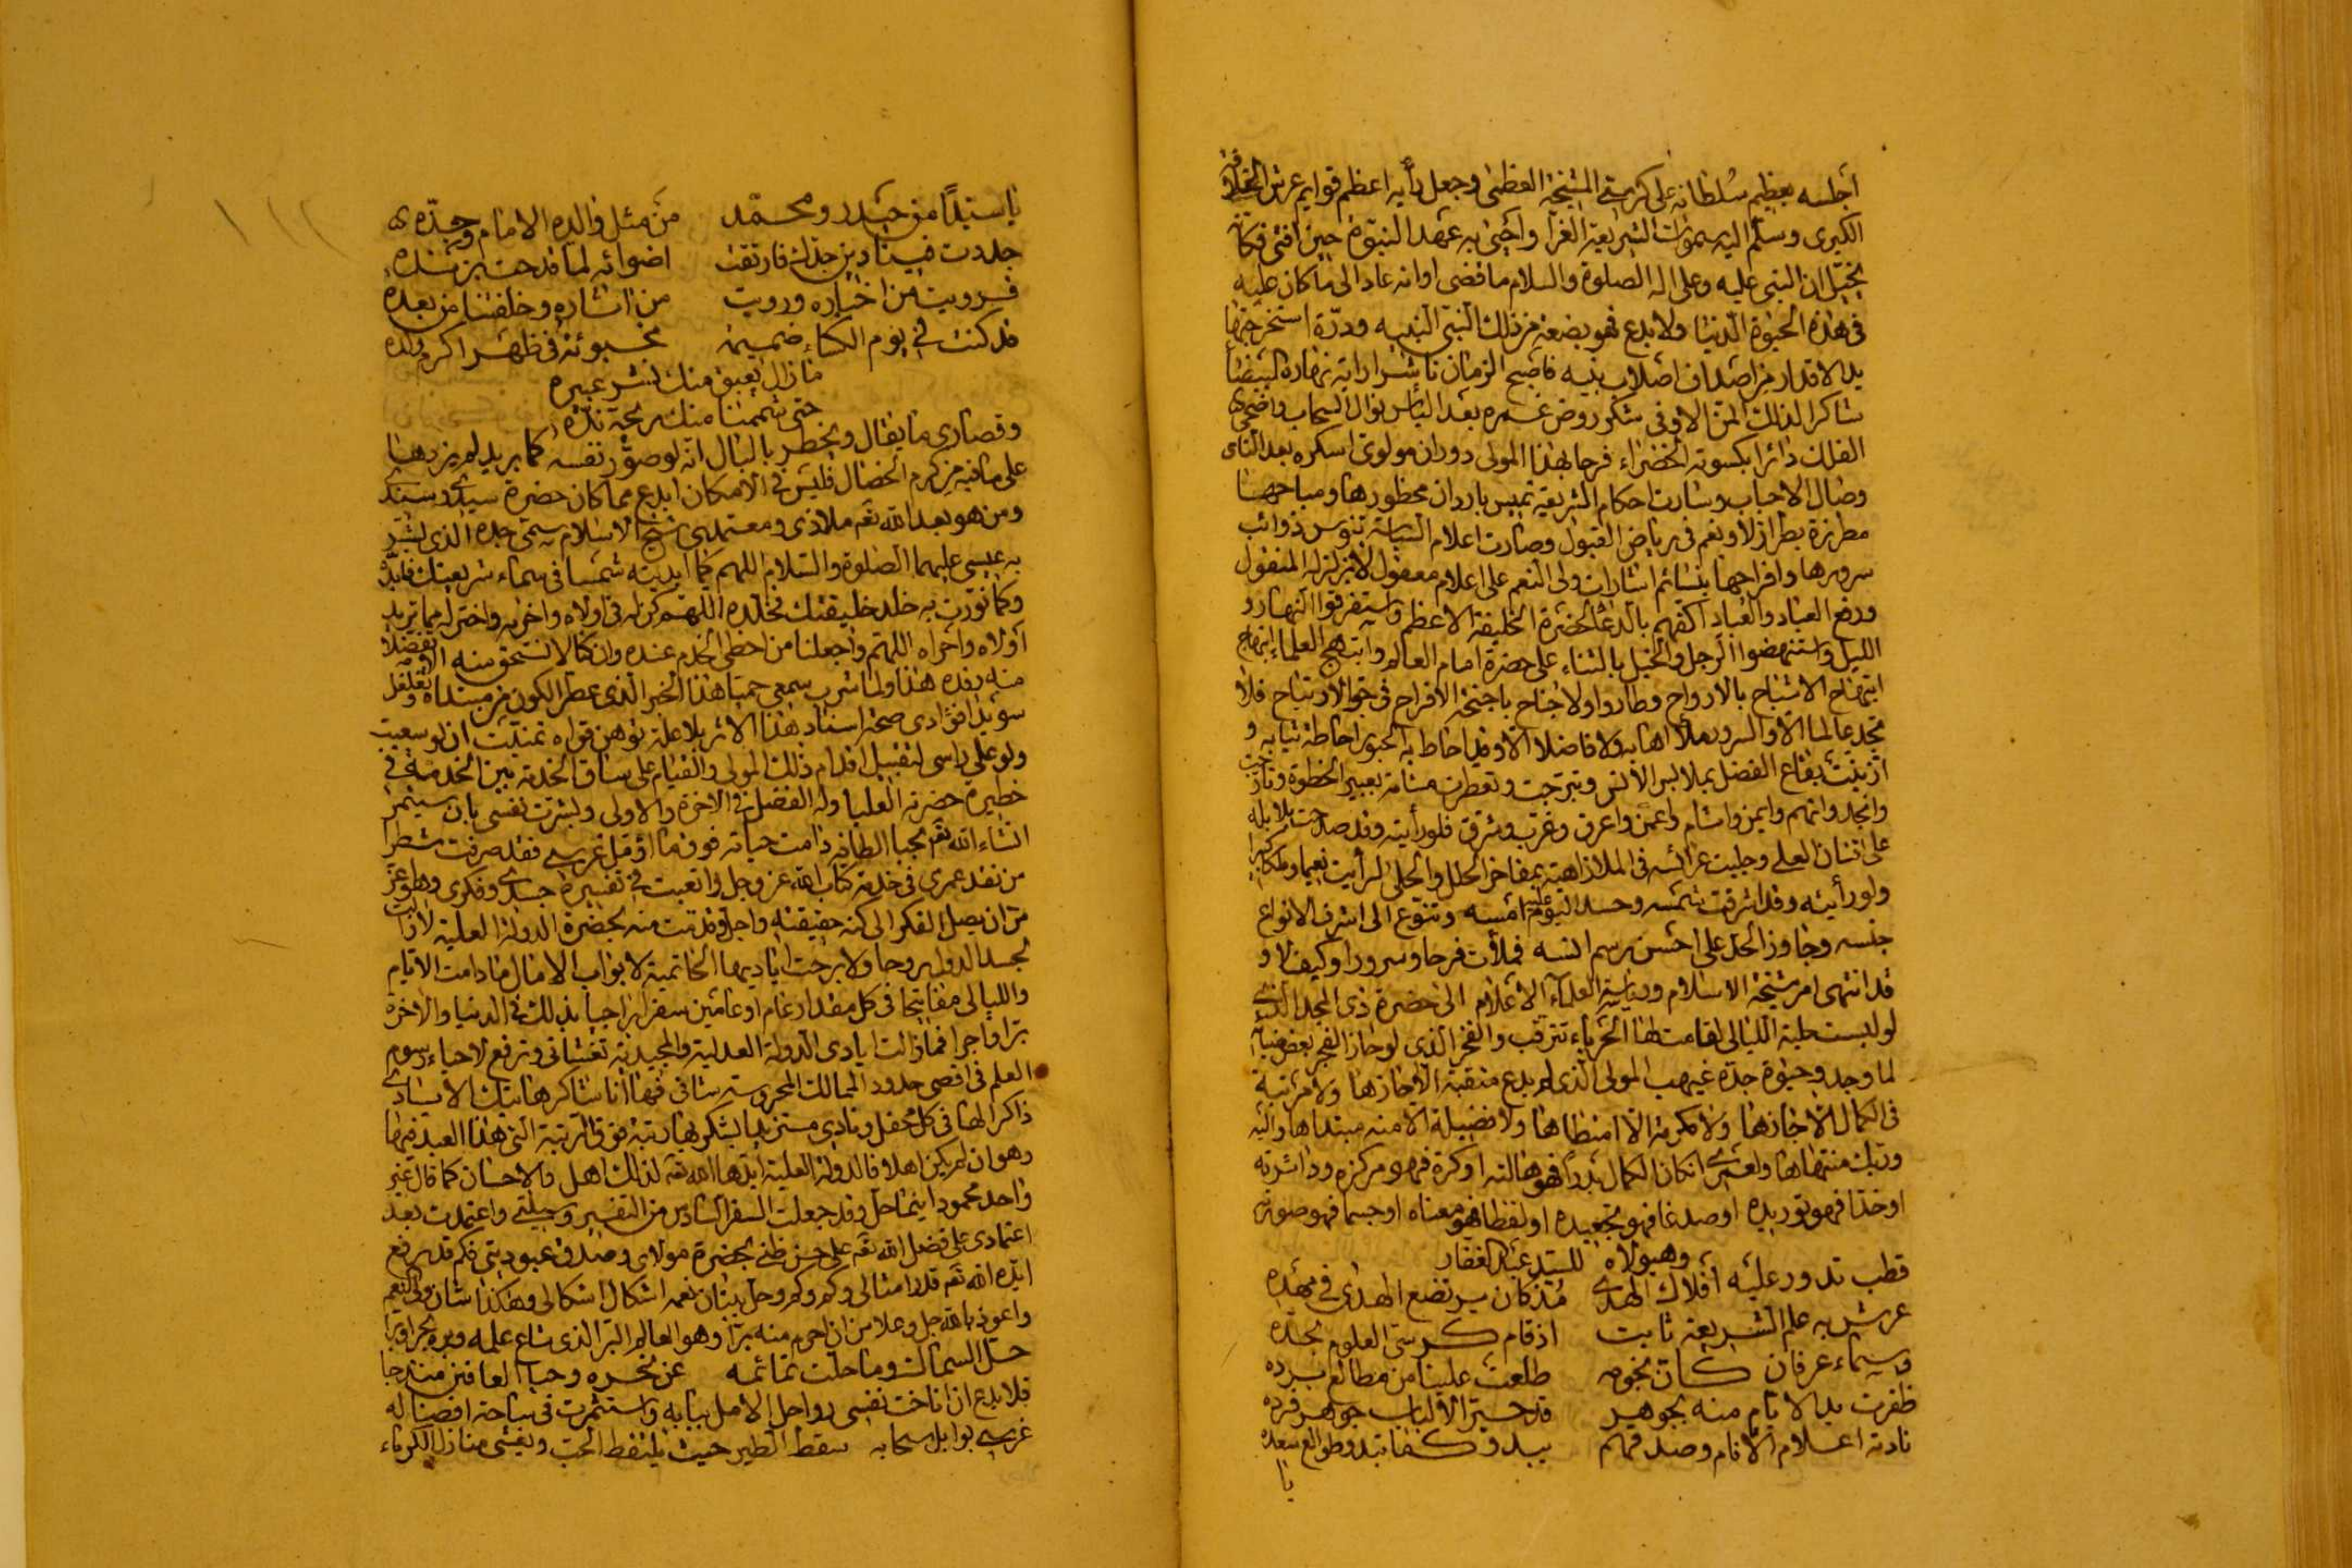 أجلسه بعظيم سلطانه على كرسي المشيخة العظمى وجعل رأيه اعظم قوايم عرش الخلافة
الكبرى وسلم اليه سموات الشريعة الغرا واحيى به عهد النبوة حين افتى فكأنه
يخيل ان النبي عليه وعلى اله الصلوة والسلام ما قضى اوانه عاد الى ما كان عليه
في هذه الحيوة الدنيا ولا بدع فهو بضعة من ذلك النبي النبيه ودرة استخرجتها
يد الاقدار من اصداف اصلاب بنيه فاصبح الزمان ناشرا راية نهاره البيضا
شاكرا لذلك المن الاوفى شكر روض غمره بعد اليأس نوال السحاب واضحى
الفلك دائرا بكسوته الخضراء فرحا بهذا المولى دوران مولوي اسكره بعد الناى
وصال الاحباب وسارت احكام الشريعة تميس باردان محظورها ومباحها
مطرزة بطراز لا ونعم في رياض القبول وصارت اعلام السياسة تنوس ذوائب
سرورها وافراحها بنسائم اشارات ولى النعم على اعلام معقول لا تزلزله المنقول
ورفع العباد والعباد اكفهم بالدعا لحضرة الخليفة الاعظم واستغرقوا النهار و
الليل واستنهضوا الرجل والخيل بالثناء على حضرة امام العالم وابتهج العلماء ابتهاج
ابتهاج الاشباح بالارواح وطاروا ولا جناح باجنحة الافراح في جو الارتياح فلا
تجد عالما الا والسرور ملأ اهابه ولا فاضلا الا وقد احاط به الحبور احاطة ثيابه و
ازينت بقاع الفضل بملابس الانس وتبرجت وتعطرت مشامه بعبير الحظوة وتأرجت
وانجد واتهم وايمن واشام واعمن واعرق وغرب وشرق فلو رأيته وقد صدحت بلابله
على افنان العلى وجليت عرائسه في الملا زاهية بمفاخر الحلل والحلى لرأيت نعيما وملكا كبيرا
ولو رأيته وقد اشرقت شمسه وحسد اليوم عليه امسه وتنوع الى اشرف الانواع
جنسه وجاوز الحد على احسن رسم انسه فملأت فرحا وسرورا وكيف لا و
قد انتهى امر مشيخة الاسلام ورياسة العلماء الاعلام الى حضرة ذى المجد الذي
لو لبست حلية الليالى لقامت لها الحرباء تترقب والفخر الذى لو حاز الفجر بعض ضيائه
لما وجد وحيوة جده غيهب المولى الذى لم يدع منقبة الا حازها ولا مرتبة
في الكمال الا جازها ولا مكرمة الا امتطاها ولا فضيلة الا منه مبتداها واليه
وربك منتهاها ولعمرى ان كان الكمال بدرا فهو هالته او كرة فهو مركزه ودائرته
او خدا فهو توريده او صدغا فهو تجعيده او لفظا فهو معناه او جسما فهو صورته
وهيولاه للسيد عبد الغفار
قطب تدور عليه أفلاك الهدى مذ كان يرتضع الهدى في مهده
عرش به علم الشريعة ثابت اذ قام كرسي العلوم بجده
وسماء عرفان كأن نجومه طلعت علينا من مطالع برده
ظفرت يد الايام منه بجوهر قد حير الألباب جوهر فرده
نادته اعلام الانام وصدقهم يبدو كما تبدو طوالع سعده
يا
يا سيدا من حيدر ومحمد من مثل والده الامام وجده
جددت فينا دين جدك فارتقت اضوائه لما قدحت بزنده
فرويت من اخباره ورويت من اثاره وخلفتنا من بعده
قد كنت في يوم الكساء ضميمة مخبوئة في ظهر اكرم ولده
ما زال يعبق منك نشر عبيره
حتى شممنا منك ريحة نده
وقصارى ما يقال ويخطر بالبال انه لو صور نفسه كما يريد لم يزدها
على ما فيه من كرم الخصال فليس في الامكان ابدع مما كان حضرة سيدى وسندى
ومن هو بعد الله تعه ملاذى ومعتمدى شيخ الاسلام سمى جده الذى بشر
به عيسى عليهما الصلوة والسلام اللهم كما ابديته شمسا في سماء شريعتك فأبده
وكما نورت به خلد خليقتك فخلده اللهم كن له في اولاه واخراه واختر له مما تريد
أولاه واخراه اللهم واجعلنا من احظى الخدم عنده وان كنا لا نستحق منه الا تفضلا
منه بعده هذا ولما شرب سمعى حميا هذا الخبر الذى عطر الكون من مبتداه وتغلغل
سويدا فؤادى صحة اسناد هذا الاثر بلا علة توهن قواه تمنيت ان لو سعيت
ولو على راسى لتقبيل اقدام ذلك المولى والقيام على ساق الخدمة بين الخدمة في
خطيرة حضرته العليا وله الفضل في الاخرة والاولى وبشرت نفسى بان سيثمر
انشاء الله تعه بحيا الطافه دامت حياته فوق ما اؤمل غرسى فقد صرفت شطرا
من نقد عمرى في خدمة كتاب الله عز وجل واتعبت في تفسيره جسدى وفكرى وهل عز
من ان يصل الفكر الى كنه حقيقته واجل وقدمت منه لحضرة الدولة العلية لا زالت
لجسد الدول روحا ولا برحت اياديها الخاتمية لابواب الامال ما دامت الايام
والليالى مفاتيحا في كل مقدار عام او عامين سفرا راجيا بذلك في الدنيا والاخرة
برا واجرا فما زالت ايادى الدولة العدلية والمجيدية تغشانى وترفع لاحياء رسوم
العلم في اقصى حدود الممالك المحروسة شانى فها انا شاكرها بتلك الايادى
ذاكرا لها في كل محفل ونادى مستزيدا بشكرها رتبة فوق الرتبة التى هذا العبد فيها
وهو ان لم يكن اهلا فالدولة العلية ابدها الله تعه لذلك اهل والاحسان كما قال غير
واحد محمود اينما حل وقد جعلت السفر السادس من التفسير وسيلتى واعتمدت بعد
اعتمادى على فضل الله تعه على حسن ظنى بحضرة مولاى وصدق عبوديتى فكم قد رفع
ابده الله تعه قدر امثالى وكم وكم وحل ببنان نعمه اشكال اشكالى وهكذا شان ولى النعم
واعوذ بالله جل وعلا من ان احرم منه برا وهو العالم البر الذى شاع علمه وبره بحرا وبرا
حل السماك وما حلت تمائمه عن نحره وحبا العافين منذ حبا
فلا بدع ان اناخت نفسى رواحل الامل ببابه واستثمرت في ساحة افضاله
غرسى بوابل سحابه سقط الطير حيث يلتقط الحب ويغشى منازل الكرماء